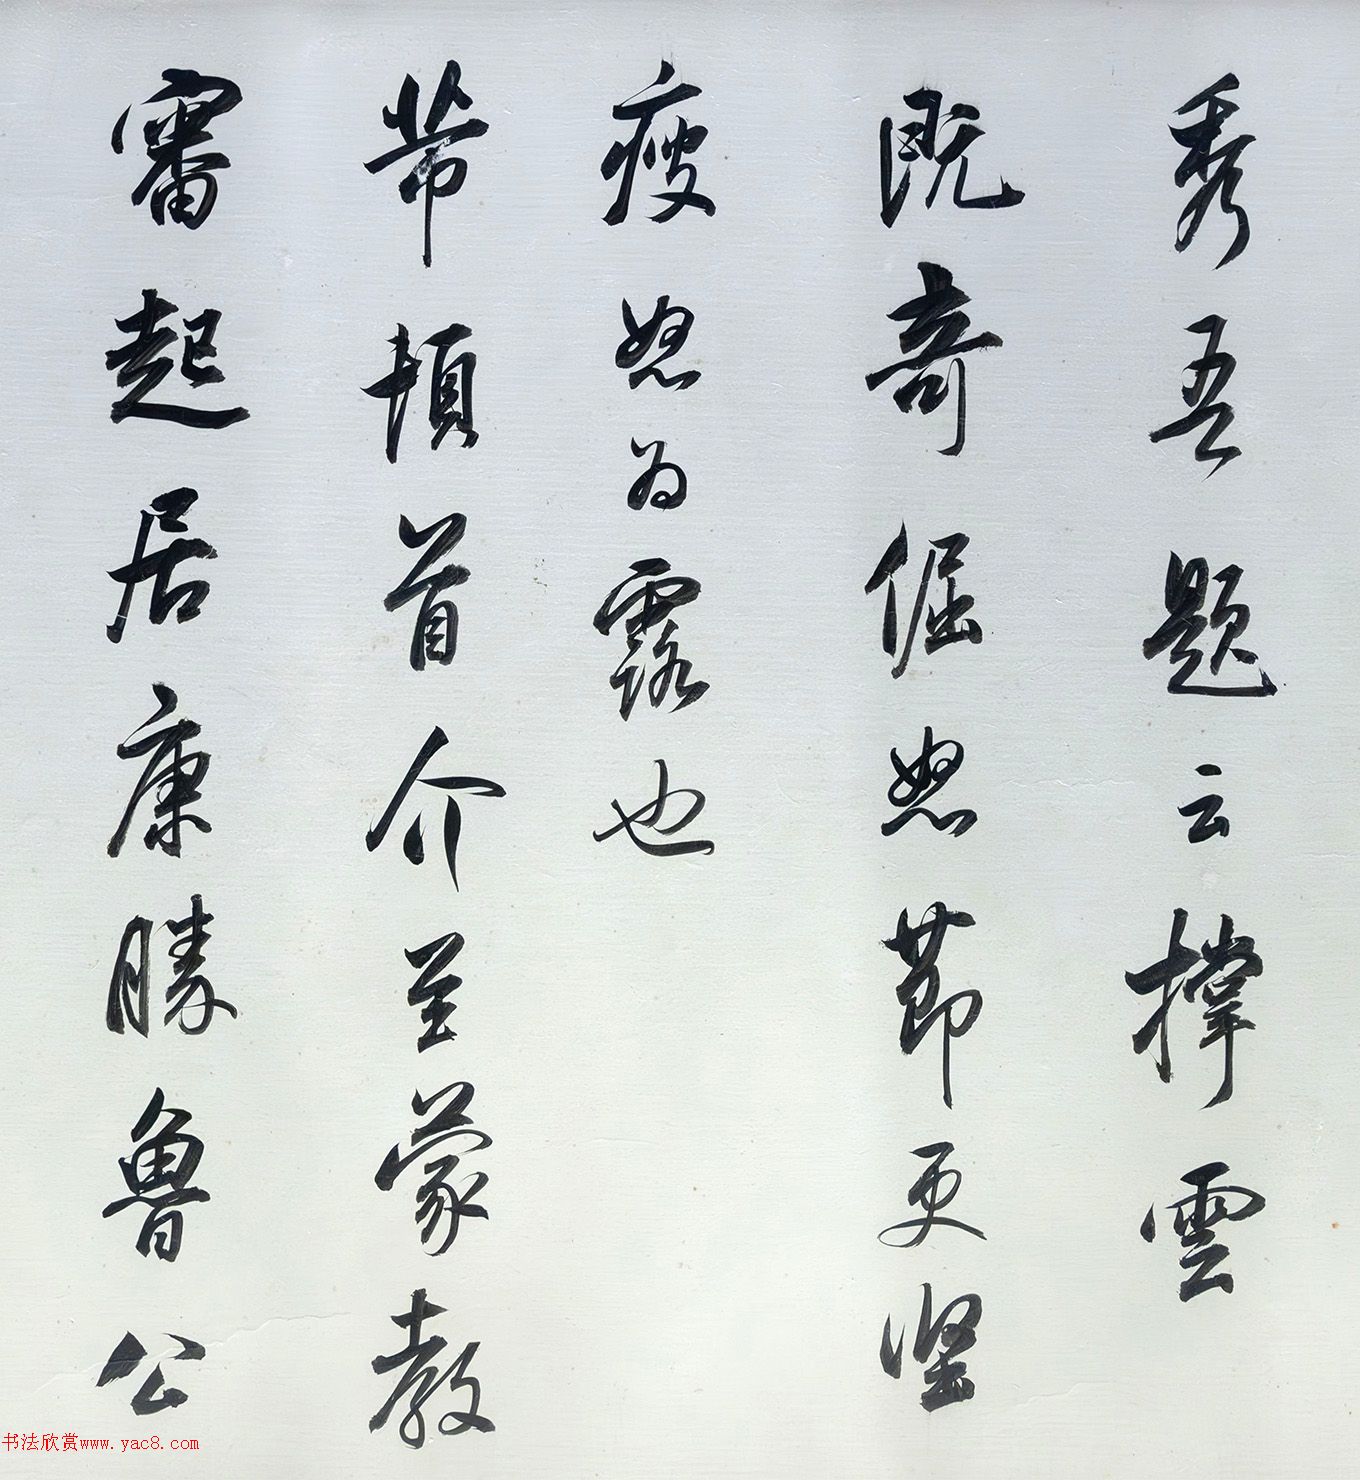 秀吾題云撐雲
既奇倔怒節更堅
瘦怒為露也
芾頓首介至蒙教
審起居康勝魯公
书法欣赏www.yac8.com